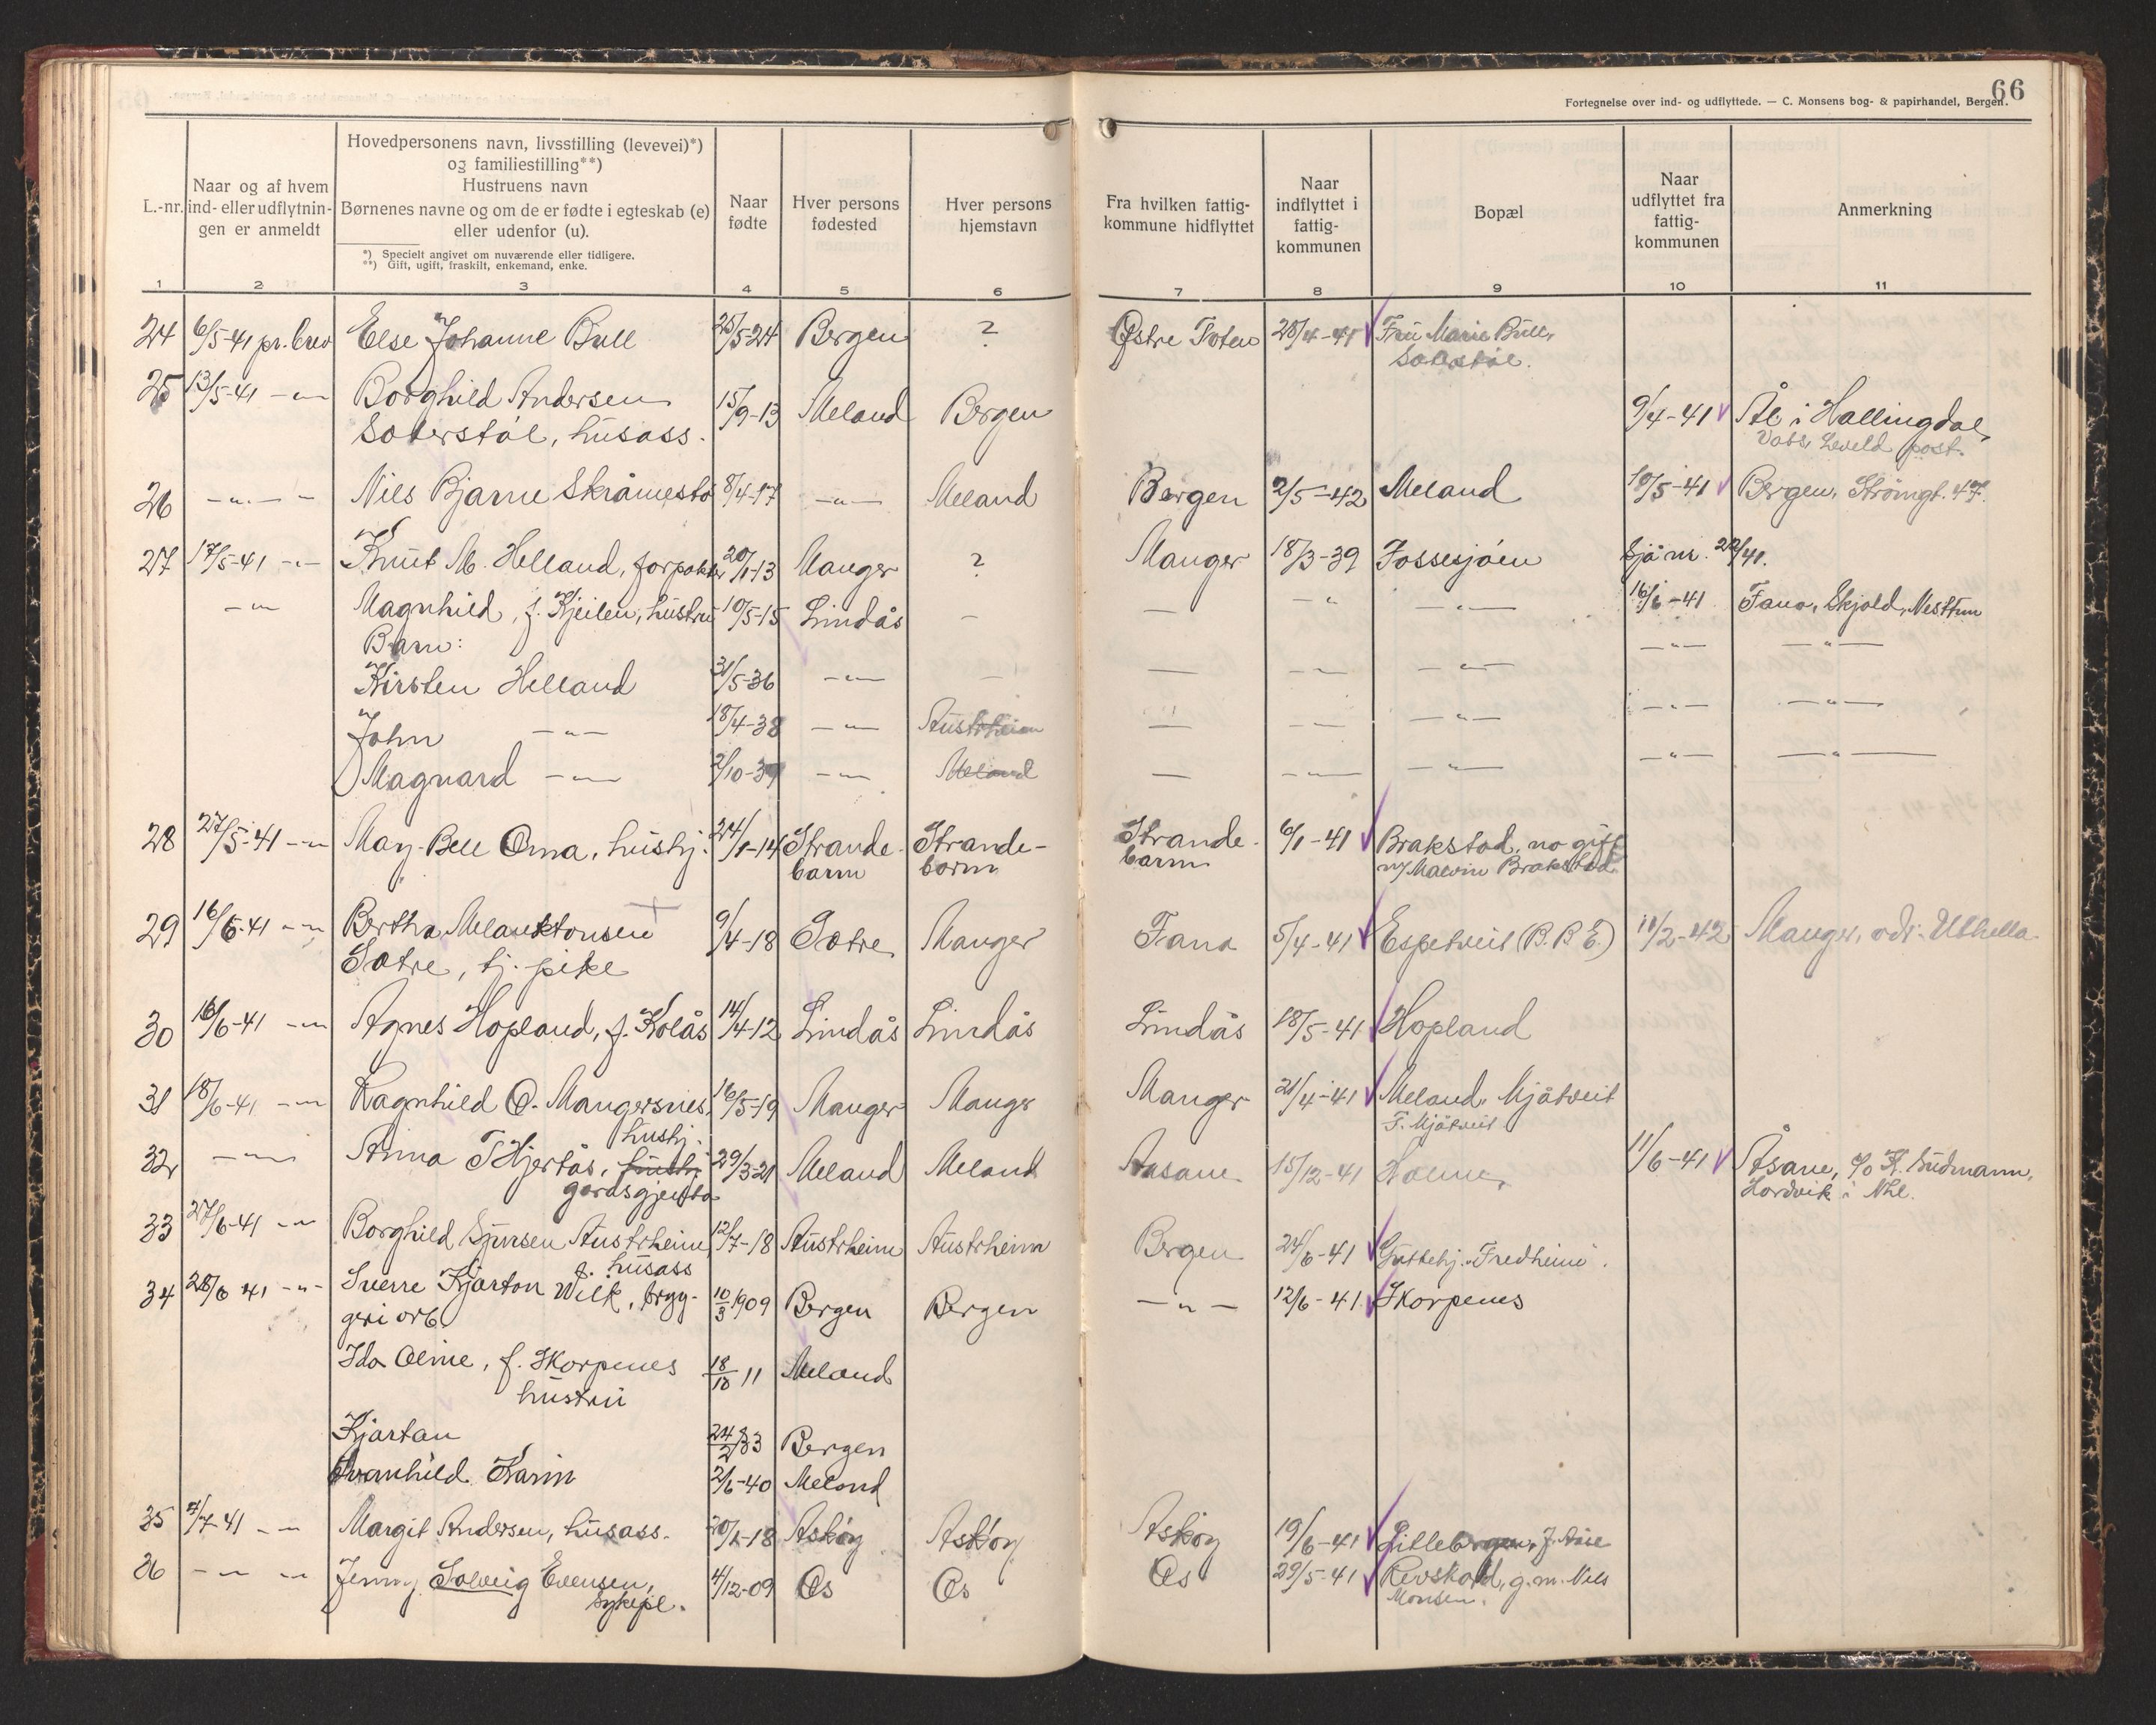 66
Fortegnelse over ind- og udflyttede. — C. Monsens bog- & papirhandel, Bergen.
L.-nr.
Naar og af hvem
ind- eller udflytnin-
gen er anmeldt
Hovedpersonens navn, livsstilling (levevei)*)
og familiestilling**)
Hustruens navn
Børnenes navne og om de er fødte i egteskab (e)
eller udenfor (u).
*) Specielt angivet om nuværende eller tidligere.
**) Gift, ugift, fraskilt, enkemand, enke.
Naar
fødte
Hver persons
fødested
Hver persons
hjemstavn
Fra hvilken fattig-
kommune hidflyttet
Naar
indflyttet i
fattig-
kommunen
Bopæl
Naar
udflyttet fra
fattig-
kommunen
Anmerkning
1 2 3 4 5 6 7 8 9 10 11
24 6/5-41 pr. brev Else Johanne Bull 25/5-24 Bergen ? Østre Toten 28/4-41 Fru Marie Bull,
Sæterstøl.
25 13/5-41 -"- Borghild Andersen 15/9-13 Meland Bergen 9/4-41 Ål i Hallingdal,
Sæterstøl, husass. Leveld post.
26 -"- - Nils Bjarne Skråmestø 8/4-17 -"- Meland Bergen 2/5-42 Meland 10/5-41 Bergen, Strömgt. 47.
27 17/5-41 -"- Knut M. Helland, forpakter 20/1-13 Manger ? Manger 18/3-39 Fossesjøen Sjøm. 22/41.
-"- Magnhild, f. Kjeilen, hustru 10/5-15 Lindås - — -"- -"- 16/6-41 Fana, Skjold, Nesttun
Barn: -"- -"-
Kirsten Helland 31/5-36 -"- - — -"- -"-
John -"- 18/4-38 -"- Austrheim — -"- -"- -"- -"-
Magnard -"- 2/10-39 -"- Meland — -"- -"- -"- -"-
28 27/5-41 -"- May-Bell Oma, hushj. 24/1-14 Strande- Strande- Strande- 6/1-41 Brakstad, no gift
barm barm barm m/ Malvin Brakstad.
29 16/6-41 -"- Bertha Melanktonsen 9/4-18 Sætre Manger Fana 5/4-41 Espetveit (B. B. E.) 11/2-42 Manger, adr. Uthella
Sætre, tj. pike
30 16/6-41 -"- Agnes Hopland, f. Kolås 14/4-12 Lindås Lindås Lindås 18/5-41 Hopland
31 18/6-41 -"- Ragnhild O. Mangersnes, 16/5-19 Manger Manger Manger 21/4-41 Meland, Mjåtveit
hushj. F. Mjåtveit
32 -"- Anna T. Hjertås, hushj. 29/3-21 Meland Meland Aasane 15/12-41 Holme, 11/6-41 Åsane, c/o K. Gudmann,
gardsgjenta Hordvik i Nhl.
33 27/6-41 -"- Borghild Sjursen Austrheim 12/7-18 Austrheim Austrheim Bergen 24/6-41 Guttehj. Fredheim.
f. husass
34 28/6 41 -"- Sverre Kjartan Wilk, bryg- 10/3 1909 Bergen Bergen -"- 12/6-41 Skorpenes
geriarb.
Ida Oline, f. Skorpenes 18/10 11 Meland
hustru
Kjartan 24/2 33 Bergen
Svanhild Karin 2/6-40 Meland
35 4/7-41 -"- Margit Andersen, husass. 20/1-18 Askøy Askøy Askøy 19/6-41 Littlebergen, J. Åse
36 -"- -"- Jenny Solveig Evensen, 4/12-09 Os Os Os 29/5-41 Revskald, g.m. Nils
sykepl. Monsen.